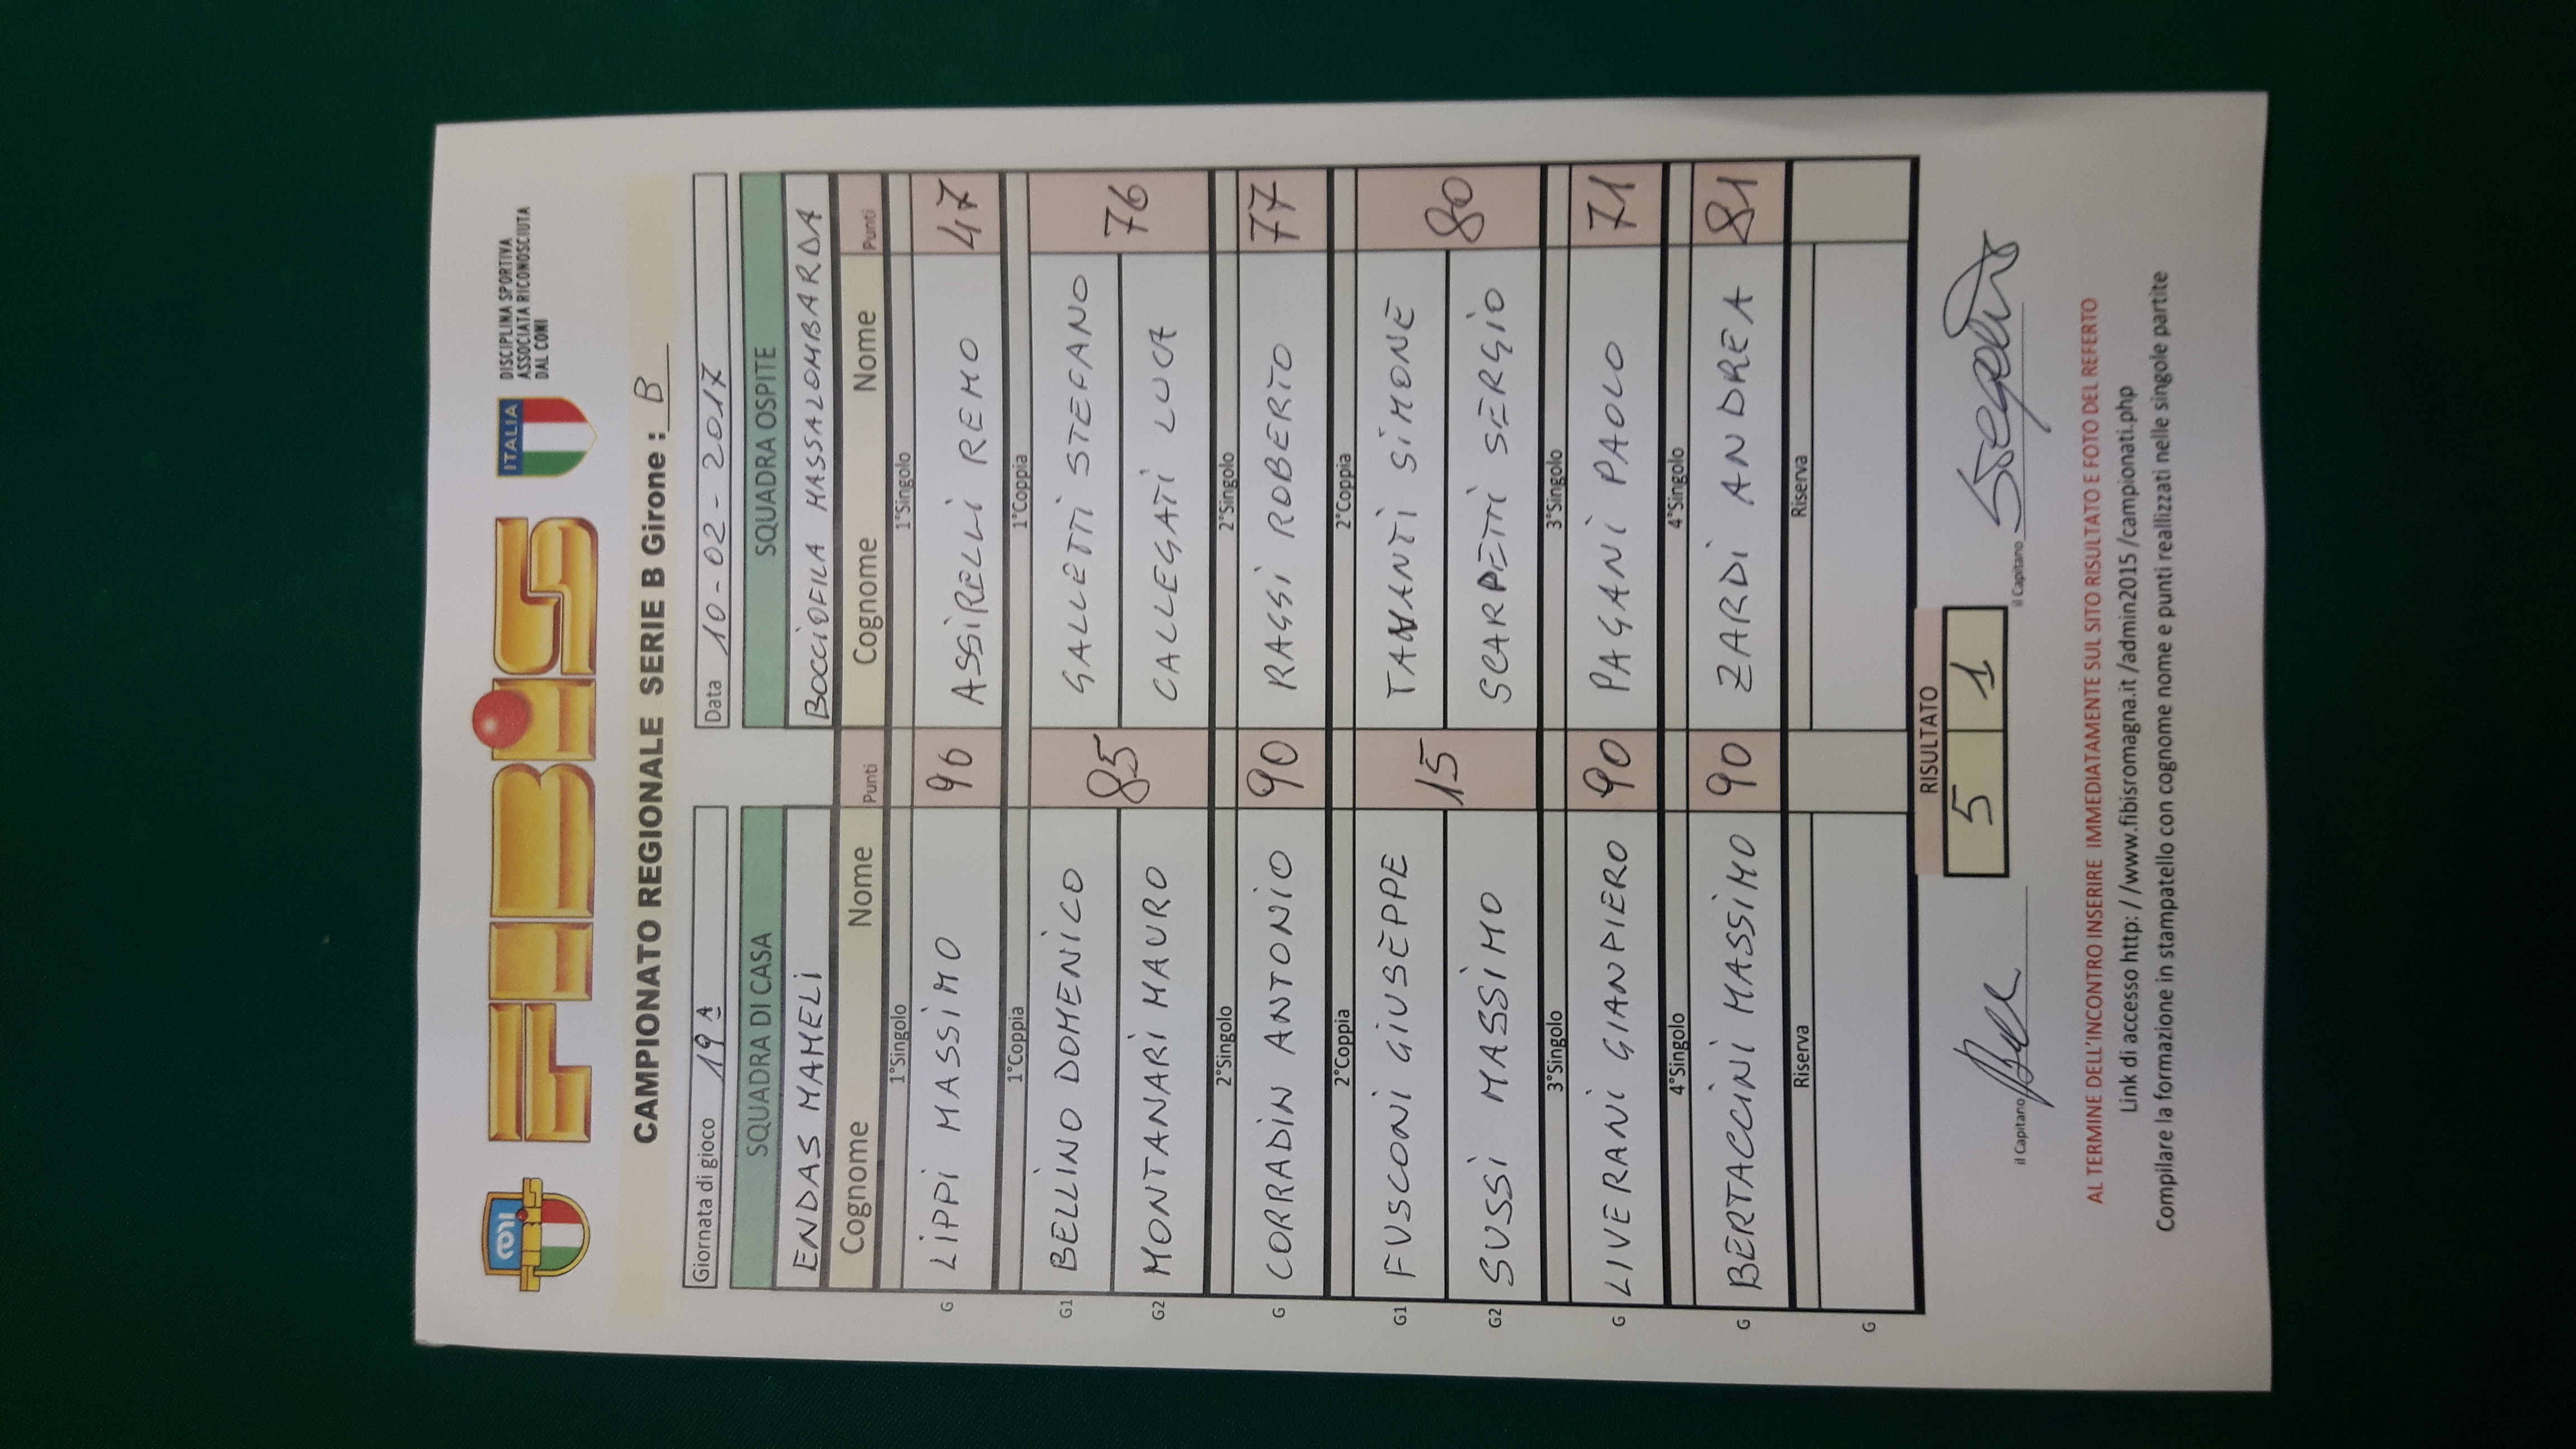 FIBiS
ITALIA
DISCIPLINA SPORTIVA
ASSOCIATA RICONOSCIUTA
DAL CONI
CAMPIONATO REGIONALE SERIE B Girone : B
Giornata di gioco 19 A Data 10-02-2017
SQUADRA DI CASA SQUADRA OSPITE
ENDAS MAMELI BOCCIOFILA MASSALOMBARDA
Cognome Nome Punti Cognome Nome Punti
1°Singolo 1°Singolo
G LIPPI MASSIMO 90 ASSIRELLI REMO 47
1°Coppia 1°Coppia
G1 BELLINO DOMENICO 85 GALLETTI STEFANO 76
G2 MONTANARI MAURO CALLEGATI LUCA
2°Singolo 2°Singolo
G CORRADIN ANTONIO 90 RAGGI ROBERTO 77
2°Coppia 2°Coppia
G1 FUSCONI GIUSEPPE 15 TAMANTI SIMONE 80
G2 SUSSI MASSIMO SCARPETTI SERGIO
3°Singolo 3°Singolo
G LIVERANI GIANPIERO 90 PAGANI PAOLO 71
4°Singolo 4°Singolo
G BERTACCINI MASSIMO 90 ZARDI ANDREA 81
Riserva Riserva
G
RISULTATO
5 1
il Capitano il Capitano
AL TERMINE DELL'INCONTRO INSERIRE IMMEDIATAMENTE SUL SITO RISULTATO E FOTO DEL REFERTO
Link di accesso http: / /www.fibisromagna.it /admin2015 /campionati.php
Compilare la formazione in stampatello con cognome nome e punti reallizzati nelle singole partite